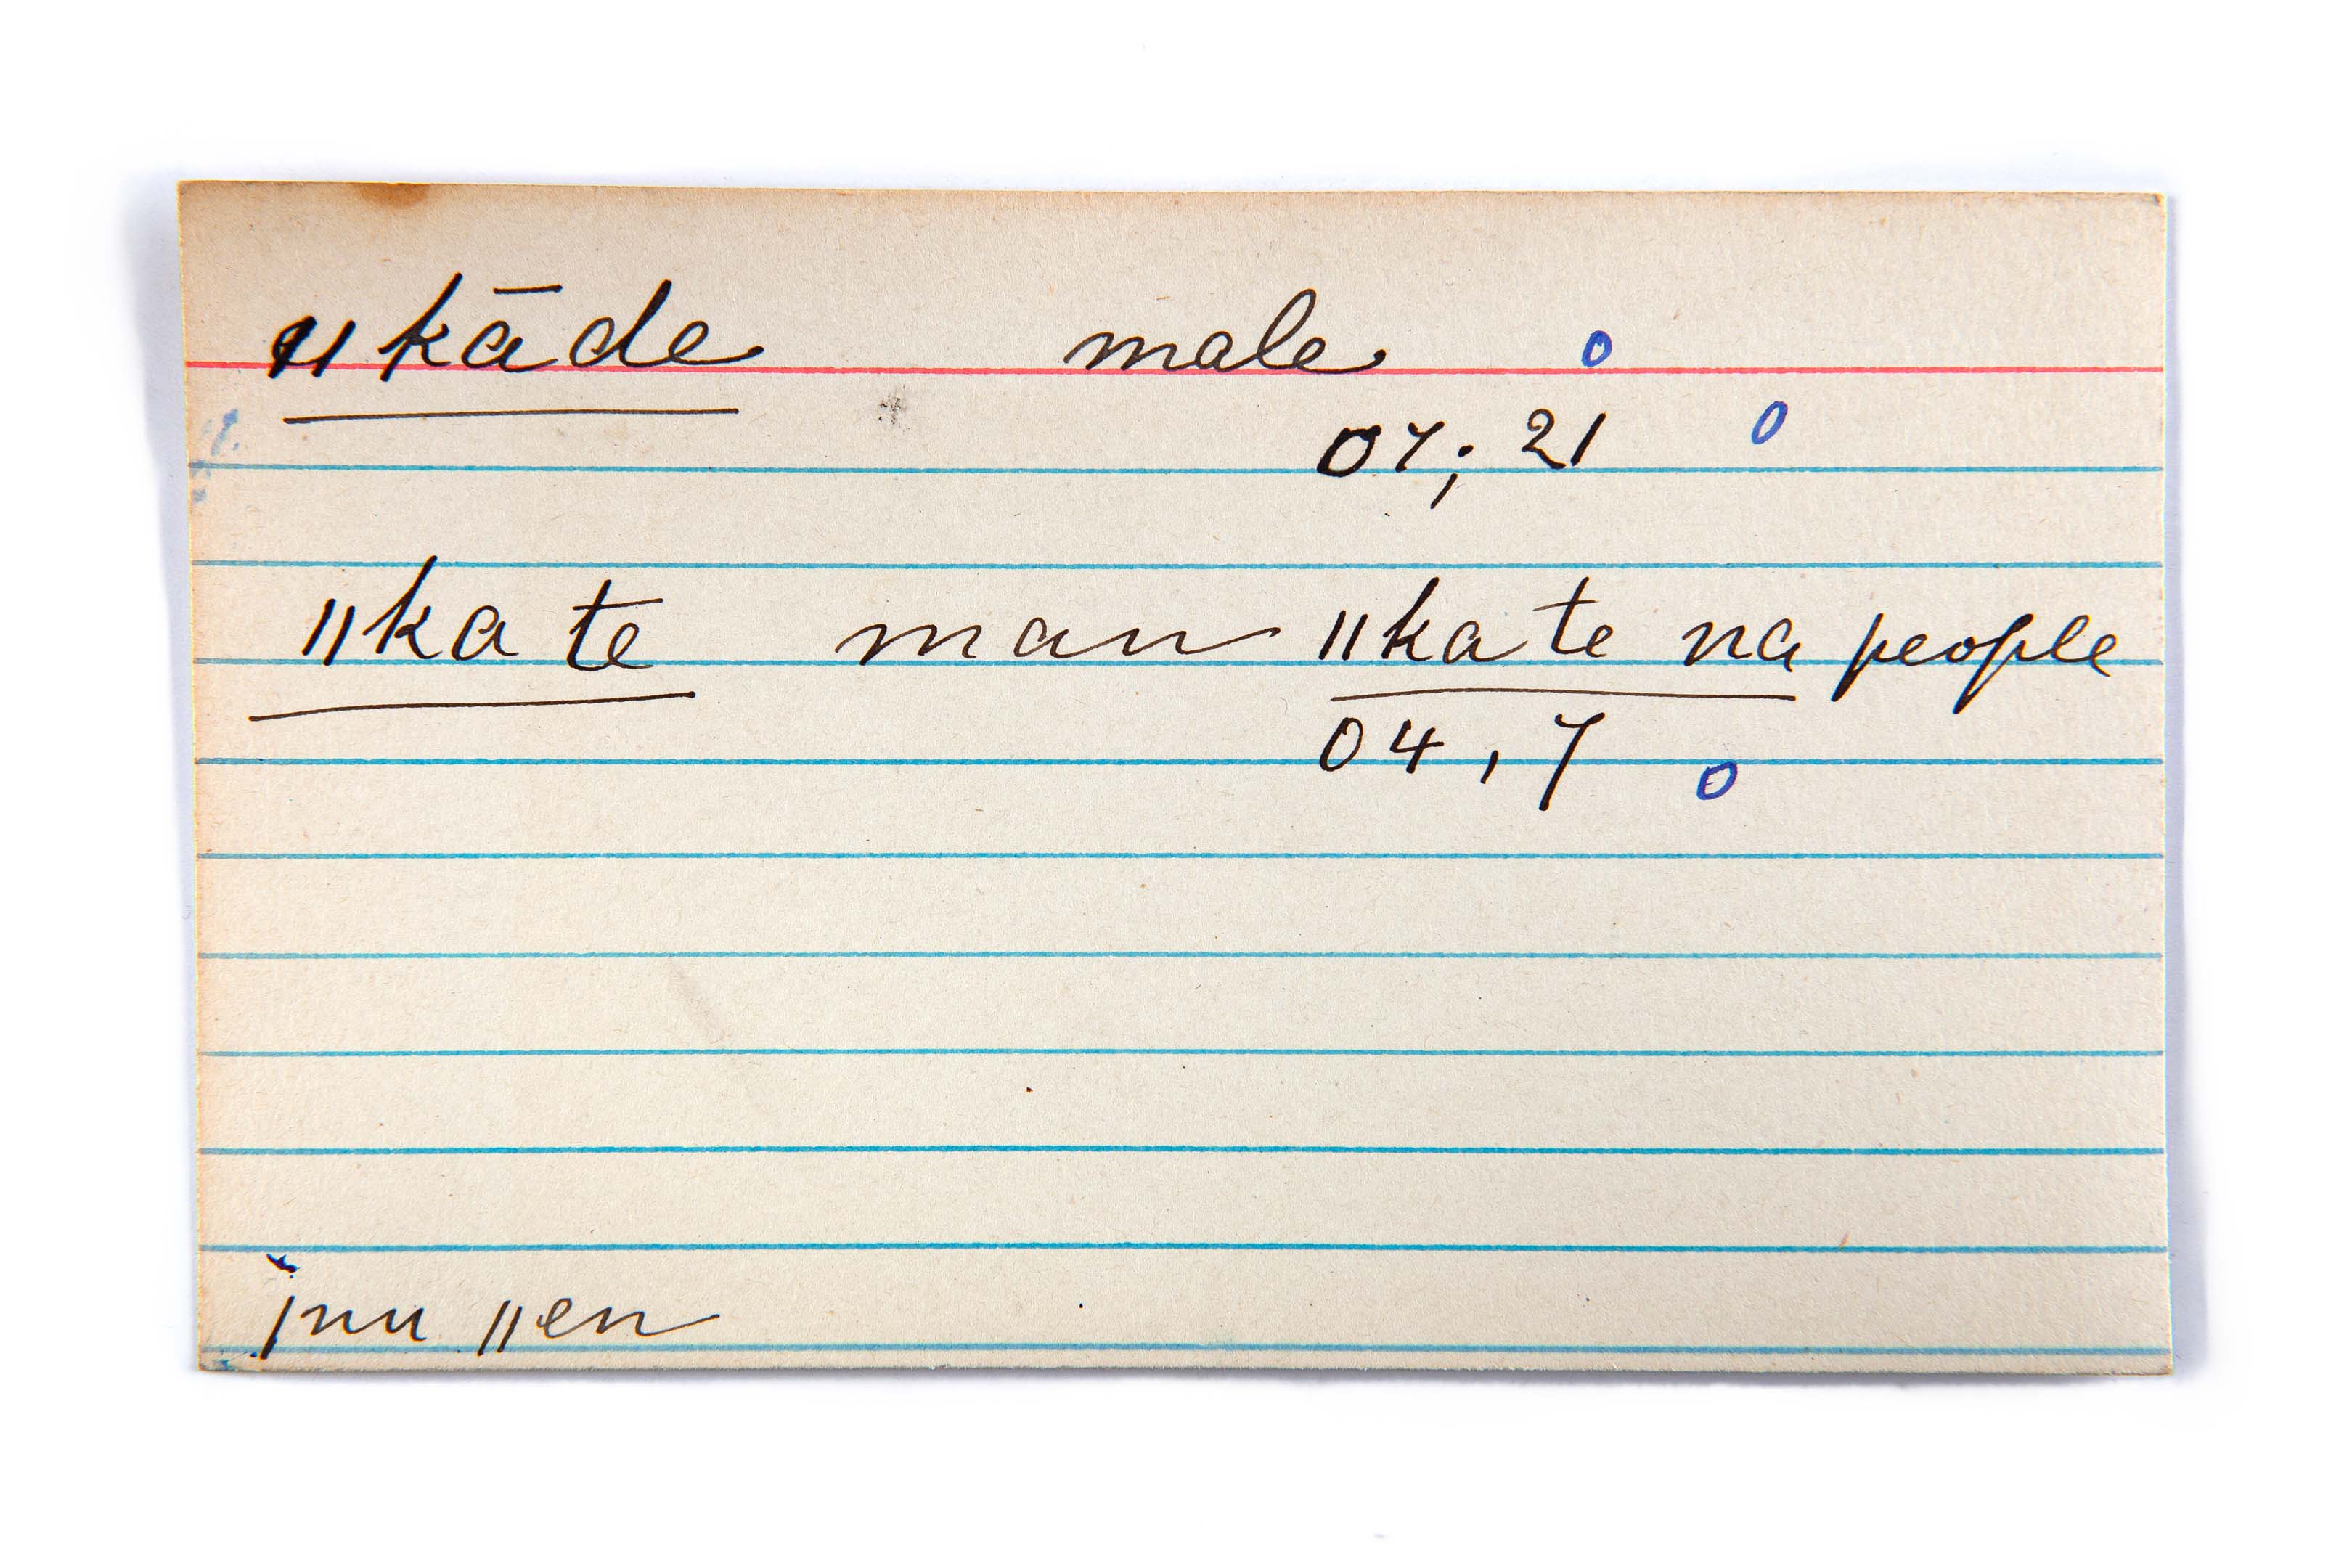 ǁkāde male o
07; 21 o
ǁka te man ǁka te na people
04, 7 o
ǀnu ǁen